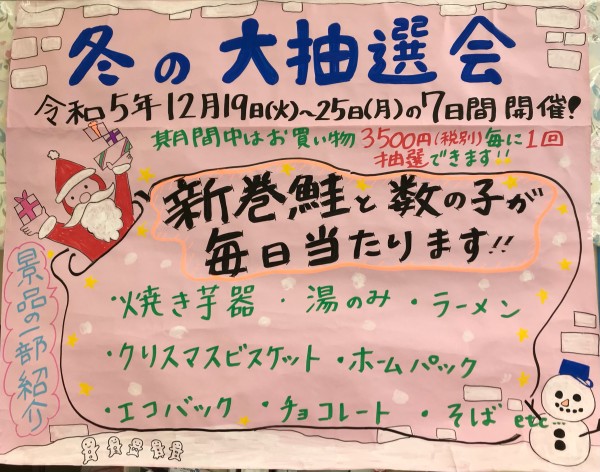 冬の大抽選会
令和5年12月19日(火)~25日(月)の7日間開催!
其月間中はお買い物3500円(税別)毎に1回
抽選できます!!
新巻鮭と数の子が
毎日当たります!!
景品の一部紹介
・焼き芋器・湯のみ・ラーメン
・クリスマスビスケット・ホームパック
・エコバック・チョコレート・そばetc…